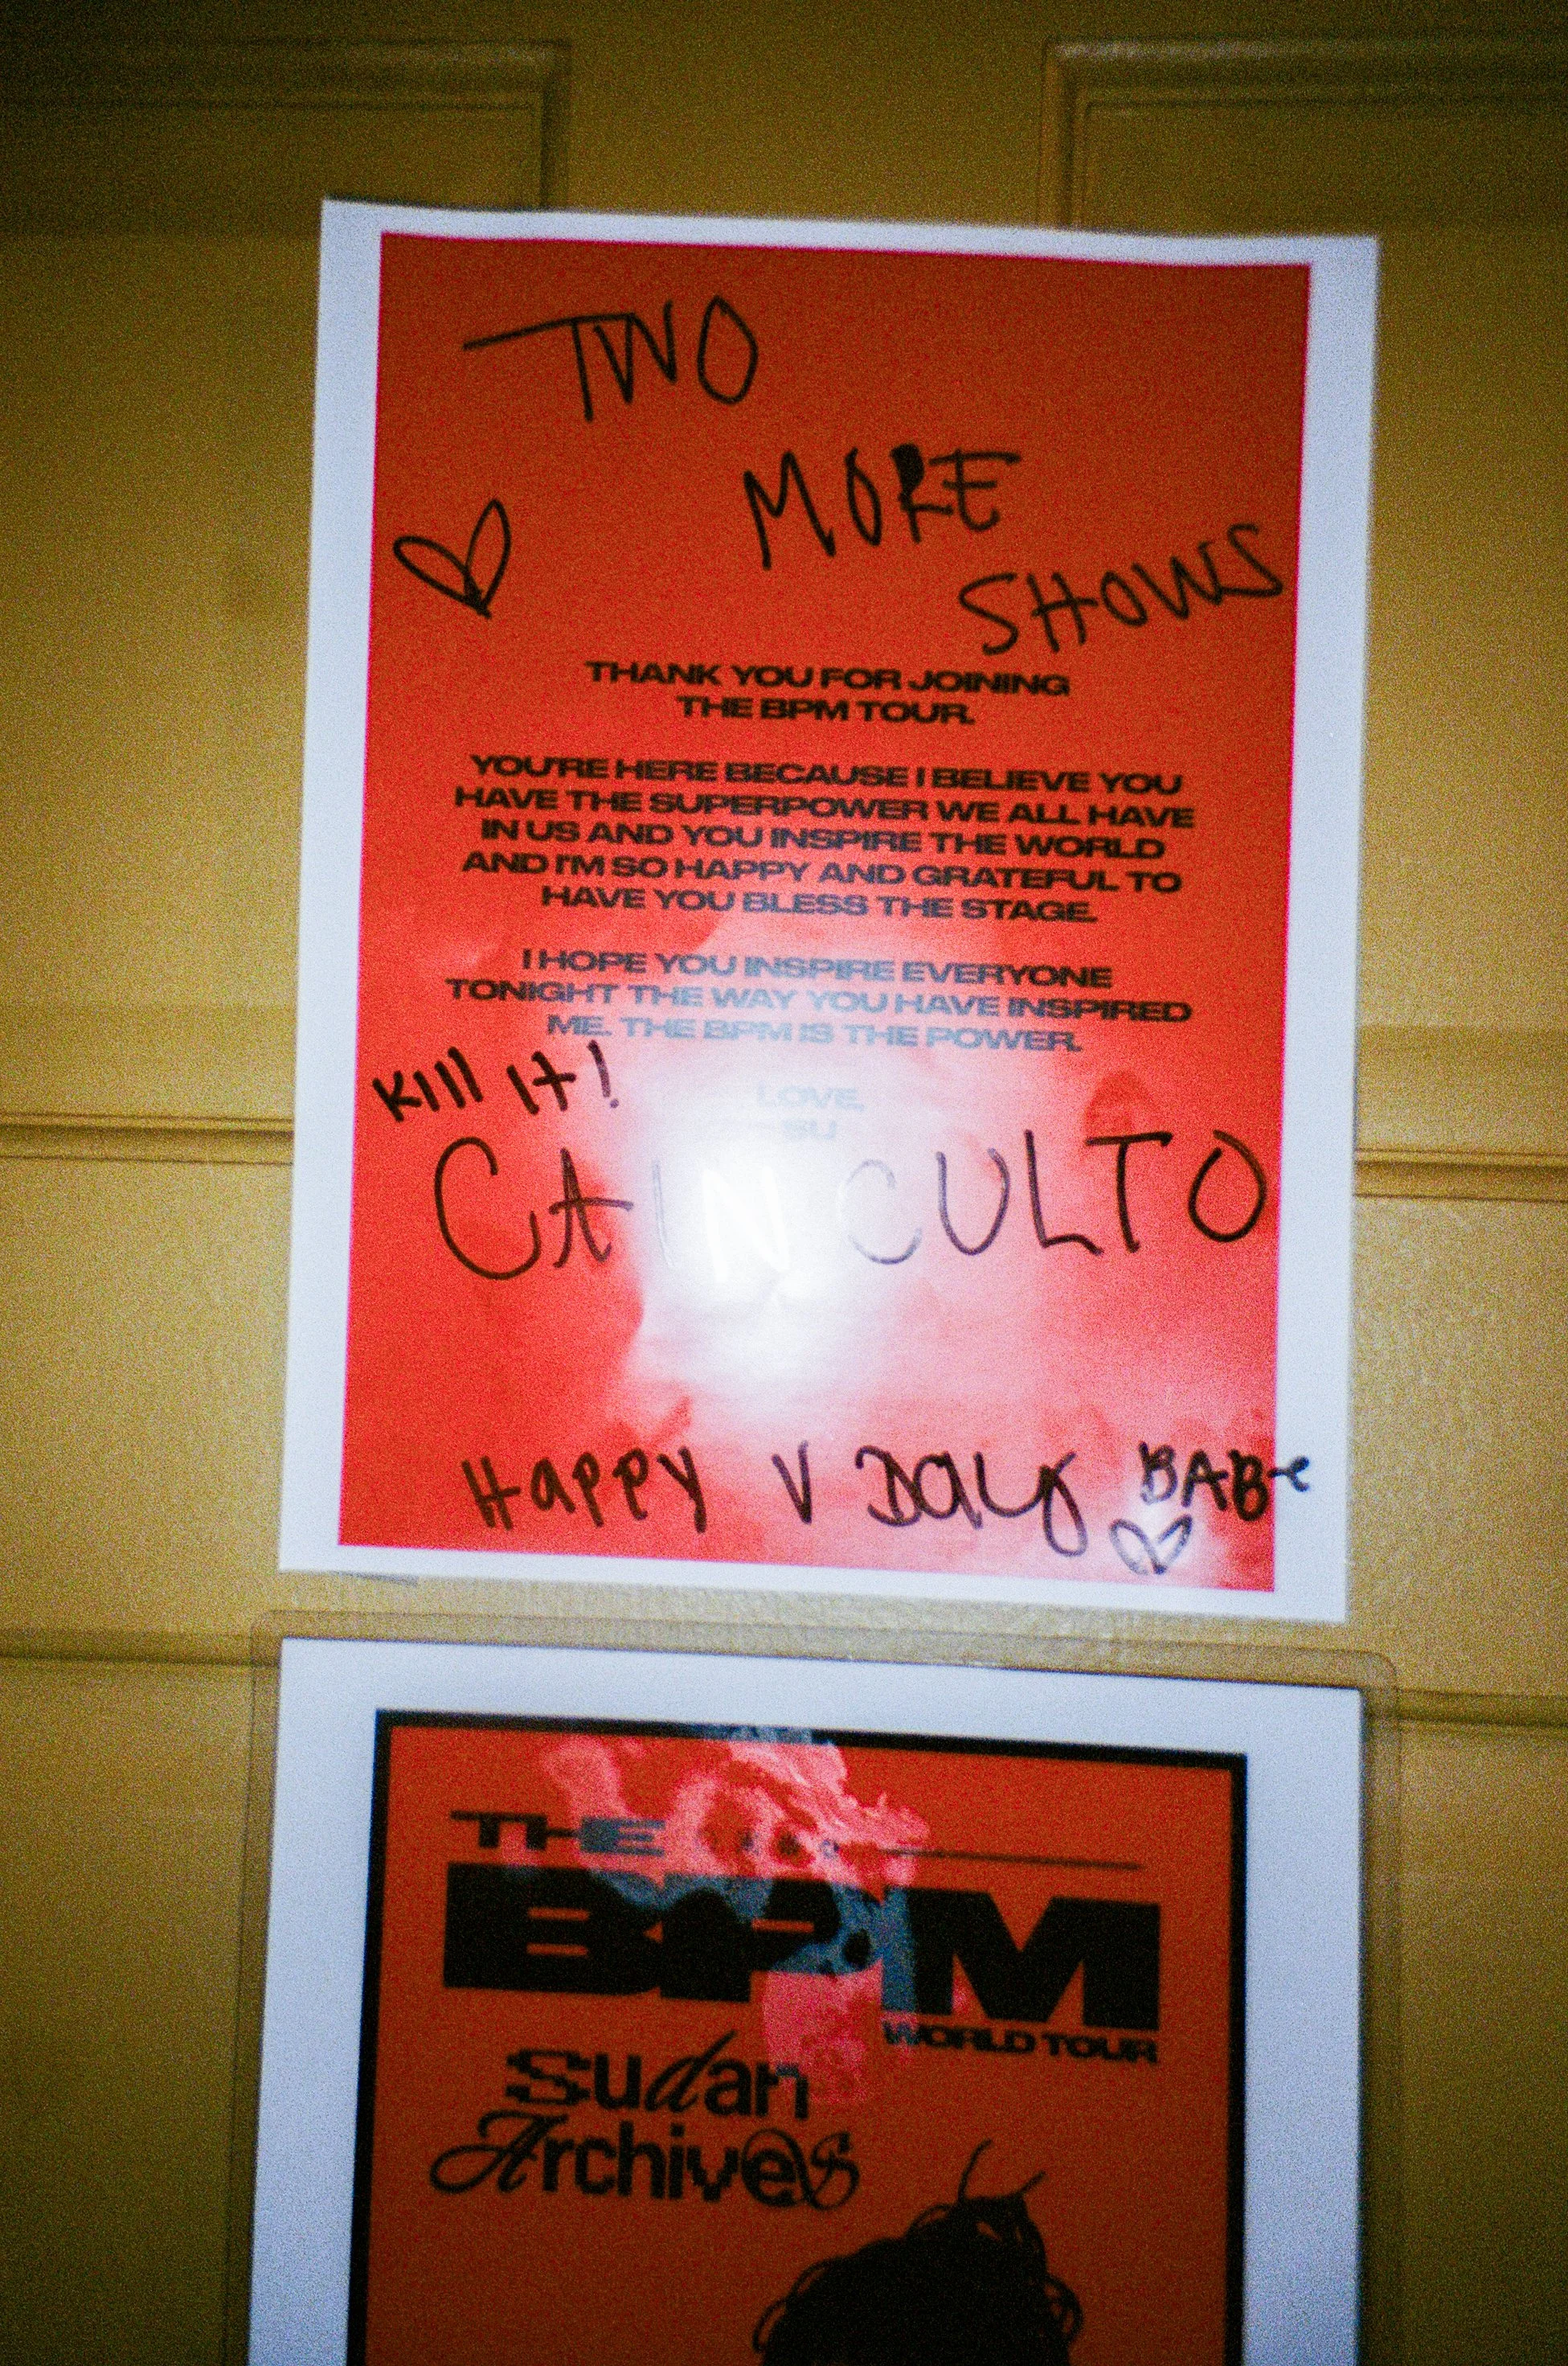 TWO
MORE
SHOWS
THANK YOU FOR JOINING
THE BPM TOUR.
YOU'RE HERE BECAUSE I BELIEVE YOU
HAVE THE SUPERPOWER WE ALL HAVE
IN US AND YOU INSPIRE THE WORLD
AND I'M SO HAPPY AND GRATEFUL TO
HAVE YOU BLESS THE STAGE.
I HOPE YOU INSPIRE EVERYONE
TONIGHT THE WAY YOU HAVE INSPIRED
ME. THE BPM IS THE POWER.
LOVE,
SU
Kill it!
CAIN CULTO
HAPPY V DAY BABe
THE
BPM
WORLD TOUR
Sudan
Archives